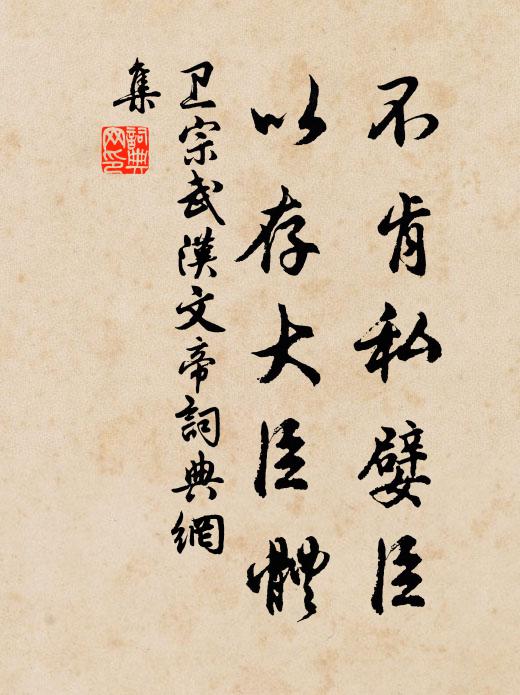 不肯私嬖臣
以存大臣體
卫宗武漢文帝詞典網
集
詞典网印